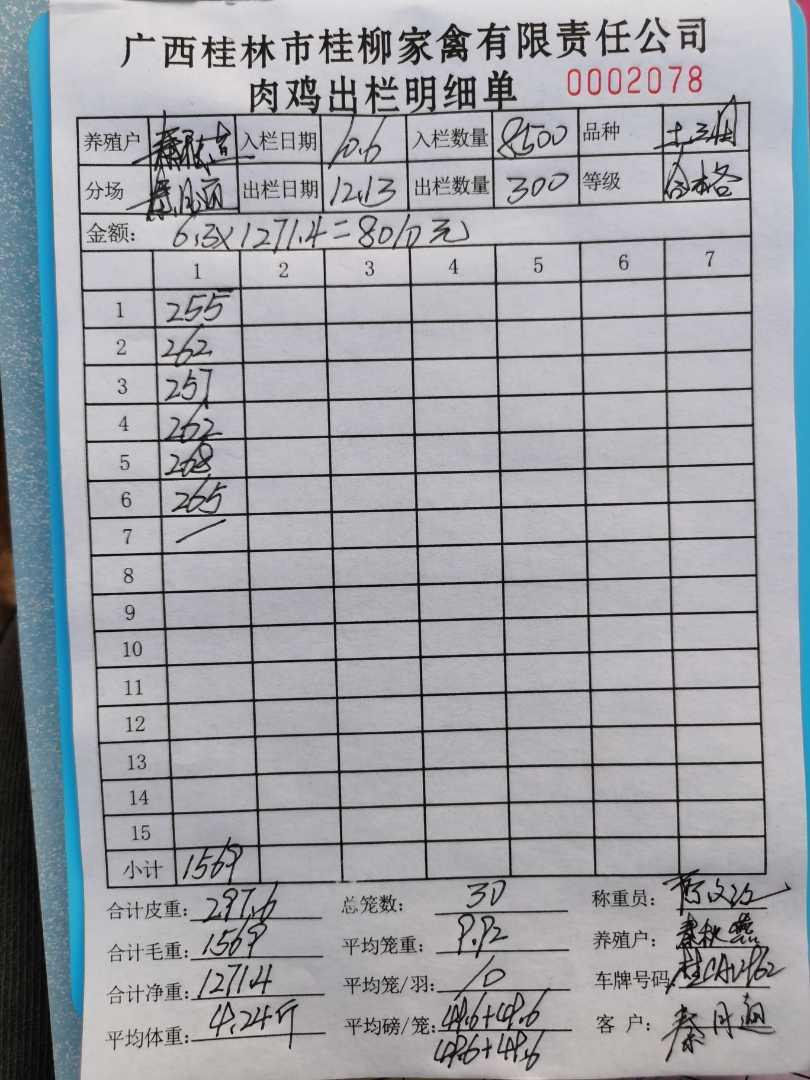 广西桂林市桂柳家禽有限责任公司
肉鸡出栏明细单 0002078
养殖户 秦 入栏日期 10.6 入栏数量 8500 品种 土
分场 秦 出栏日期 12.13 出栏数量 300 等级 合格
金额: 6.3×1271.4=8010元
1 2 3 4 5 6 7
1 255
2 262
3 257
4 262
5 268
6 265
7 /
8
9
10
11
12
13
14
15
小计 1569
合计皮重: 297.6 总笼数: 30 称重员:
合计毛重: 1569 平均笼重: 9.92 养殖户: 秦秋燕
合计净重: 1271.4 平均笼/羽: 10 车牌号码
平均体重: 4.24斤 平均磅/笼: 49.6+49.6 客 户: 秦月
49.6+49.6